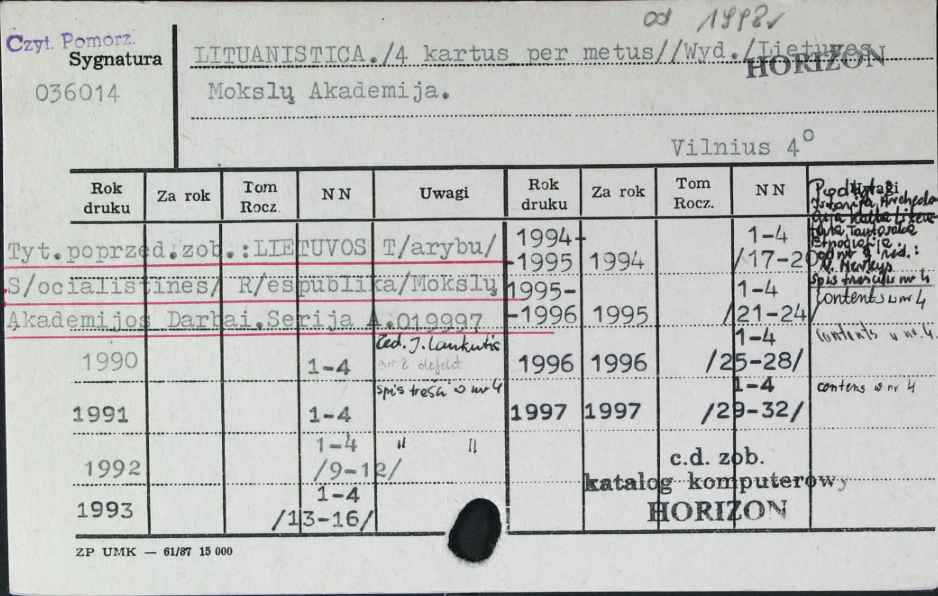 od 1998r
Czyt. Pomorz.
Sygnatura
036014
LITUANISTICA./4 kartus per metus//Wyd./Lietuvos
HORIZON
Mokslų Akademija.
Vilnius 4°
Rok druku Za rok Tom Rocz. NN Uwagi Rok druku Za rok Tom Rocz. NN Uwagi
Tyt.poprzed.zob.:LIETUVOS T/arybu/
S/ocialistines/ R/espublika/Mokslų
Akademijos Darbai.Serija A.019997
1990 1-4 red. J. Lankutis
nr 2 defekt
1991 1-4 spis treści w nr 4
1992 1-4 /9-12/ " "
1993 1-4 /13-16/
1994-
-1995 1994 1-4 /17-20
spis treści w nr 4
1995-
-1996 1995 1-4 /21-24/ contents w nr 4
1996 1996 1-4 /25-28/ contents w nr. 4
1997 1997 1-4 /29-32/ contens w nr 4
c.d. zob.
katalog komputerowy
HORIZON
ZP UMK — 61/87 15 000